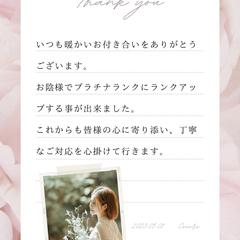 Thank you
いつも暖かいお付き合いをありがとう
ございます。
お陰様でプラチナランクにランクアッ
プする事が出来ました。
これからも皆様の心に寄り添い、丁寧
なご対応を心掛けて行きます。